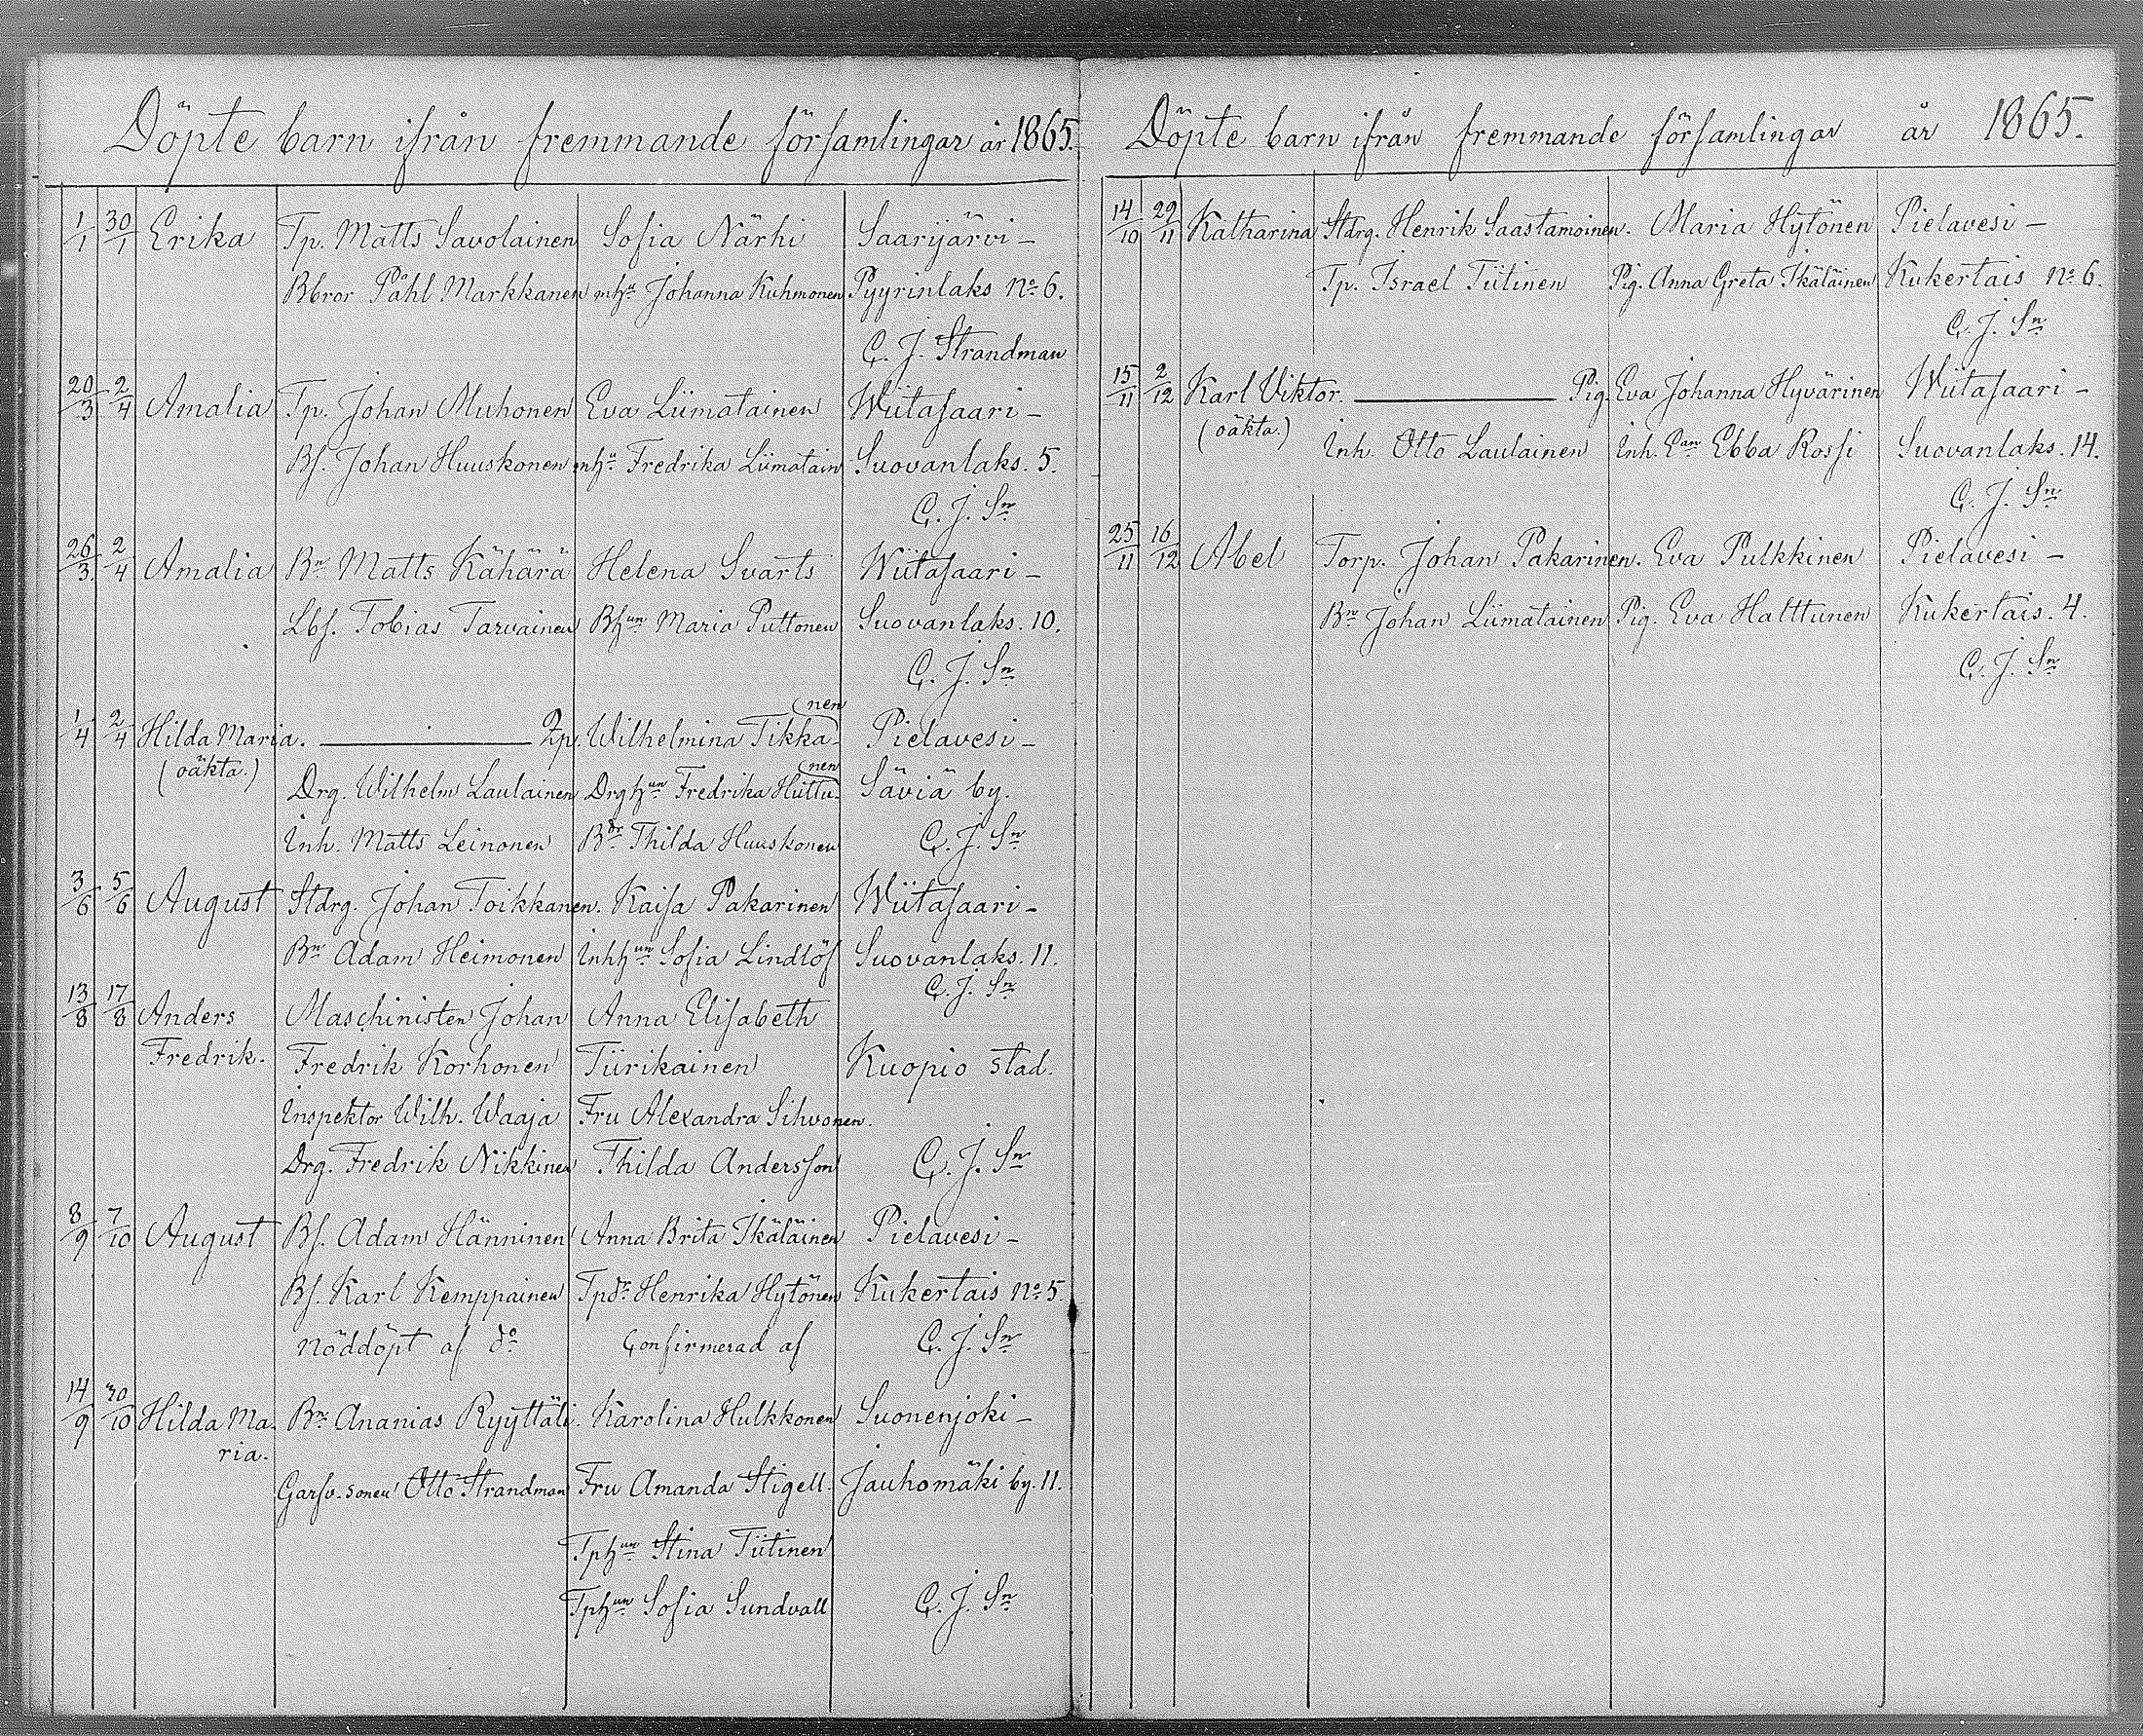 Döpte barn ifrån fremmande församlingar år 1865.
1/1 30/1 Erika Tp. Matts Savolainen Sofia Närhi Saarijärvi –
Bbror Påhl Markkanen mhu Johanna Kuhmonen Pyyrinlaks No 6.
C. J. Strandman
20/3 2/4 Amalia Tp. Johan Muhonen Eva Liimatainen Wiitasaari –
Bs. Johan Huuskonen mhu Fredrika Liimatain Suovanlaks. 5.
C. J. Sn
26/3 2/4 Amalia Bn Matts Kähärä Helena Svarts Wiitasaari –
Lbs. Tobias Tarvainen Bhun Maria Puttonen Suovanlaks. 10.
C. J. Sn
1/4 2/4 Hilda Maria. — Qp. Wilhelmina Tikka-(nen Pielavesi –
(oäkta.)
Drg. Wilhelm Laulainen Drghun Fredrika Huttu-(nen Säviä by.
Inh. Matts Leinonen Bdr Thilda Huuskonen C. J. Sn
3/6 5/6 August Stdrg. Johan Toikkanen. Kaisa Pakarinen Wiitasaari –
Bn Adam Heimonen Inhhun Sofia Lindlöf Suovanlaks. 11.
C. J. Sn
13/8 17/8 Anders Maschinisten Johan Anna Elisabeth
Fredrik. Fredrik Korhonen Tiirikainen Kuopio stad.
Inspektor Wilh. Waaja Fru Alexandra Sihvonen.
Drg. Fredrik Nikkinen Thilda Andersson C. J. Sn
8/9 7/10 August Bs. Adam Hänninen Anna Brita Ikäläinen Pielavesi –
Bs. Karl Kemppainen Tpdr Henrika Hytönen Kukertais No 5.
nöddöpt af do Confirmerad af C. J. Sn
14/9 30/10 Hilda Ma- Bn Ananias Ryyttäli. Karolina Hulkkonen Suonenjoki –
ria.
Garfv. sonen Otto Strandman Fru Amanda Stigell. Jauhomäki by. 11.
Tphun Stina Tiitinen
Tphun Sofia Sundvall C. J. Sn
Döpte barn ifrån fremmande församlingar år 1865.
14/10 29/11 Katharina Stdrg. Henrik Saastamoinen. Maria Hytönen Pielavesi –
Tp. Israel Tiitinen Pig. Anna Greta Ikäläinen Kukertais No 6.
C. J. Sn
15/11 2/12 Karl Viktor. — Pig. Eva Johanna Hyvärinen Wiitasaari –
(oäkta.)
Inh. Otto Laulainen Inh. Ean Ebba Rossi Suovanlaks. 14.
C. J. Sn
25/11 16/12 Abel Torp. Johan Pakarinen. Eva Pulkkinen Pielavesi –
Bn Johan Liimatainen Pig. Eva Halttunen Kukertais. 4.
C. J. Sn